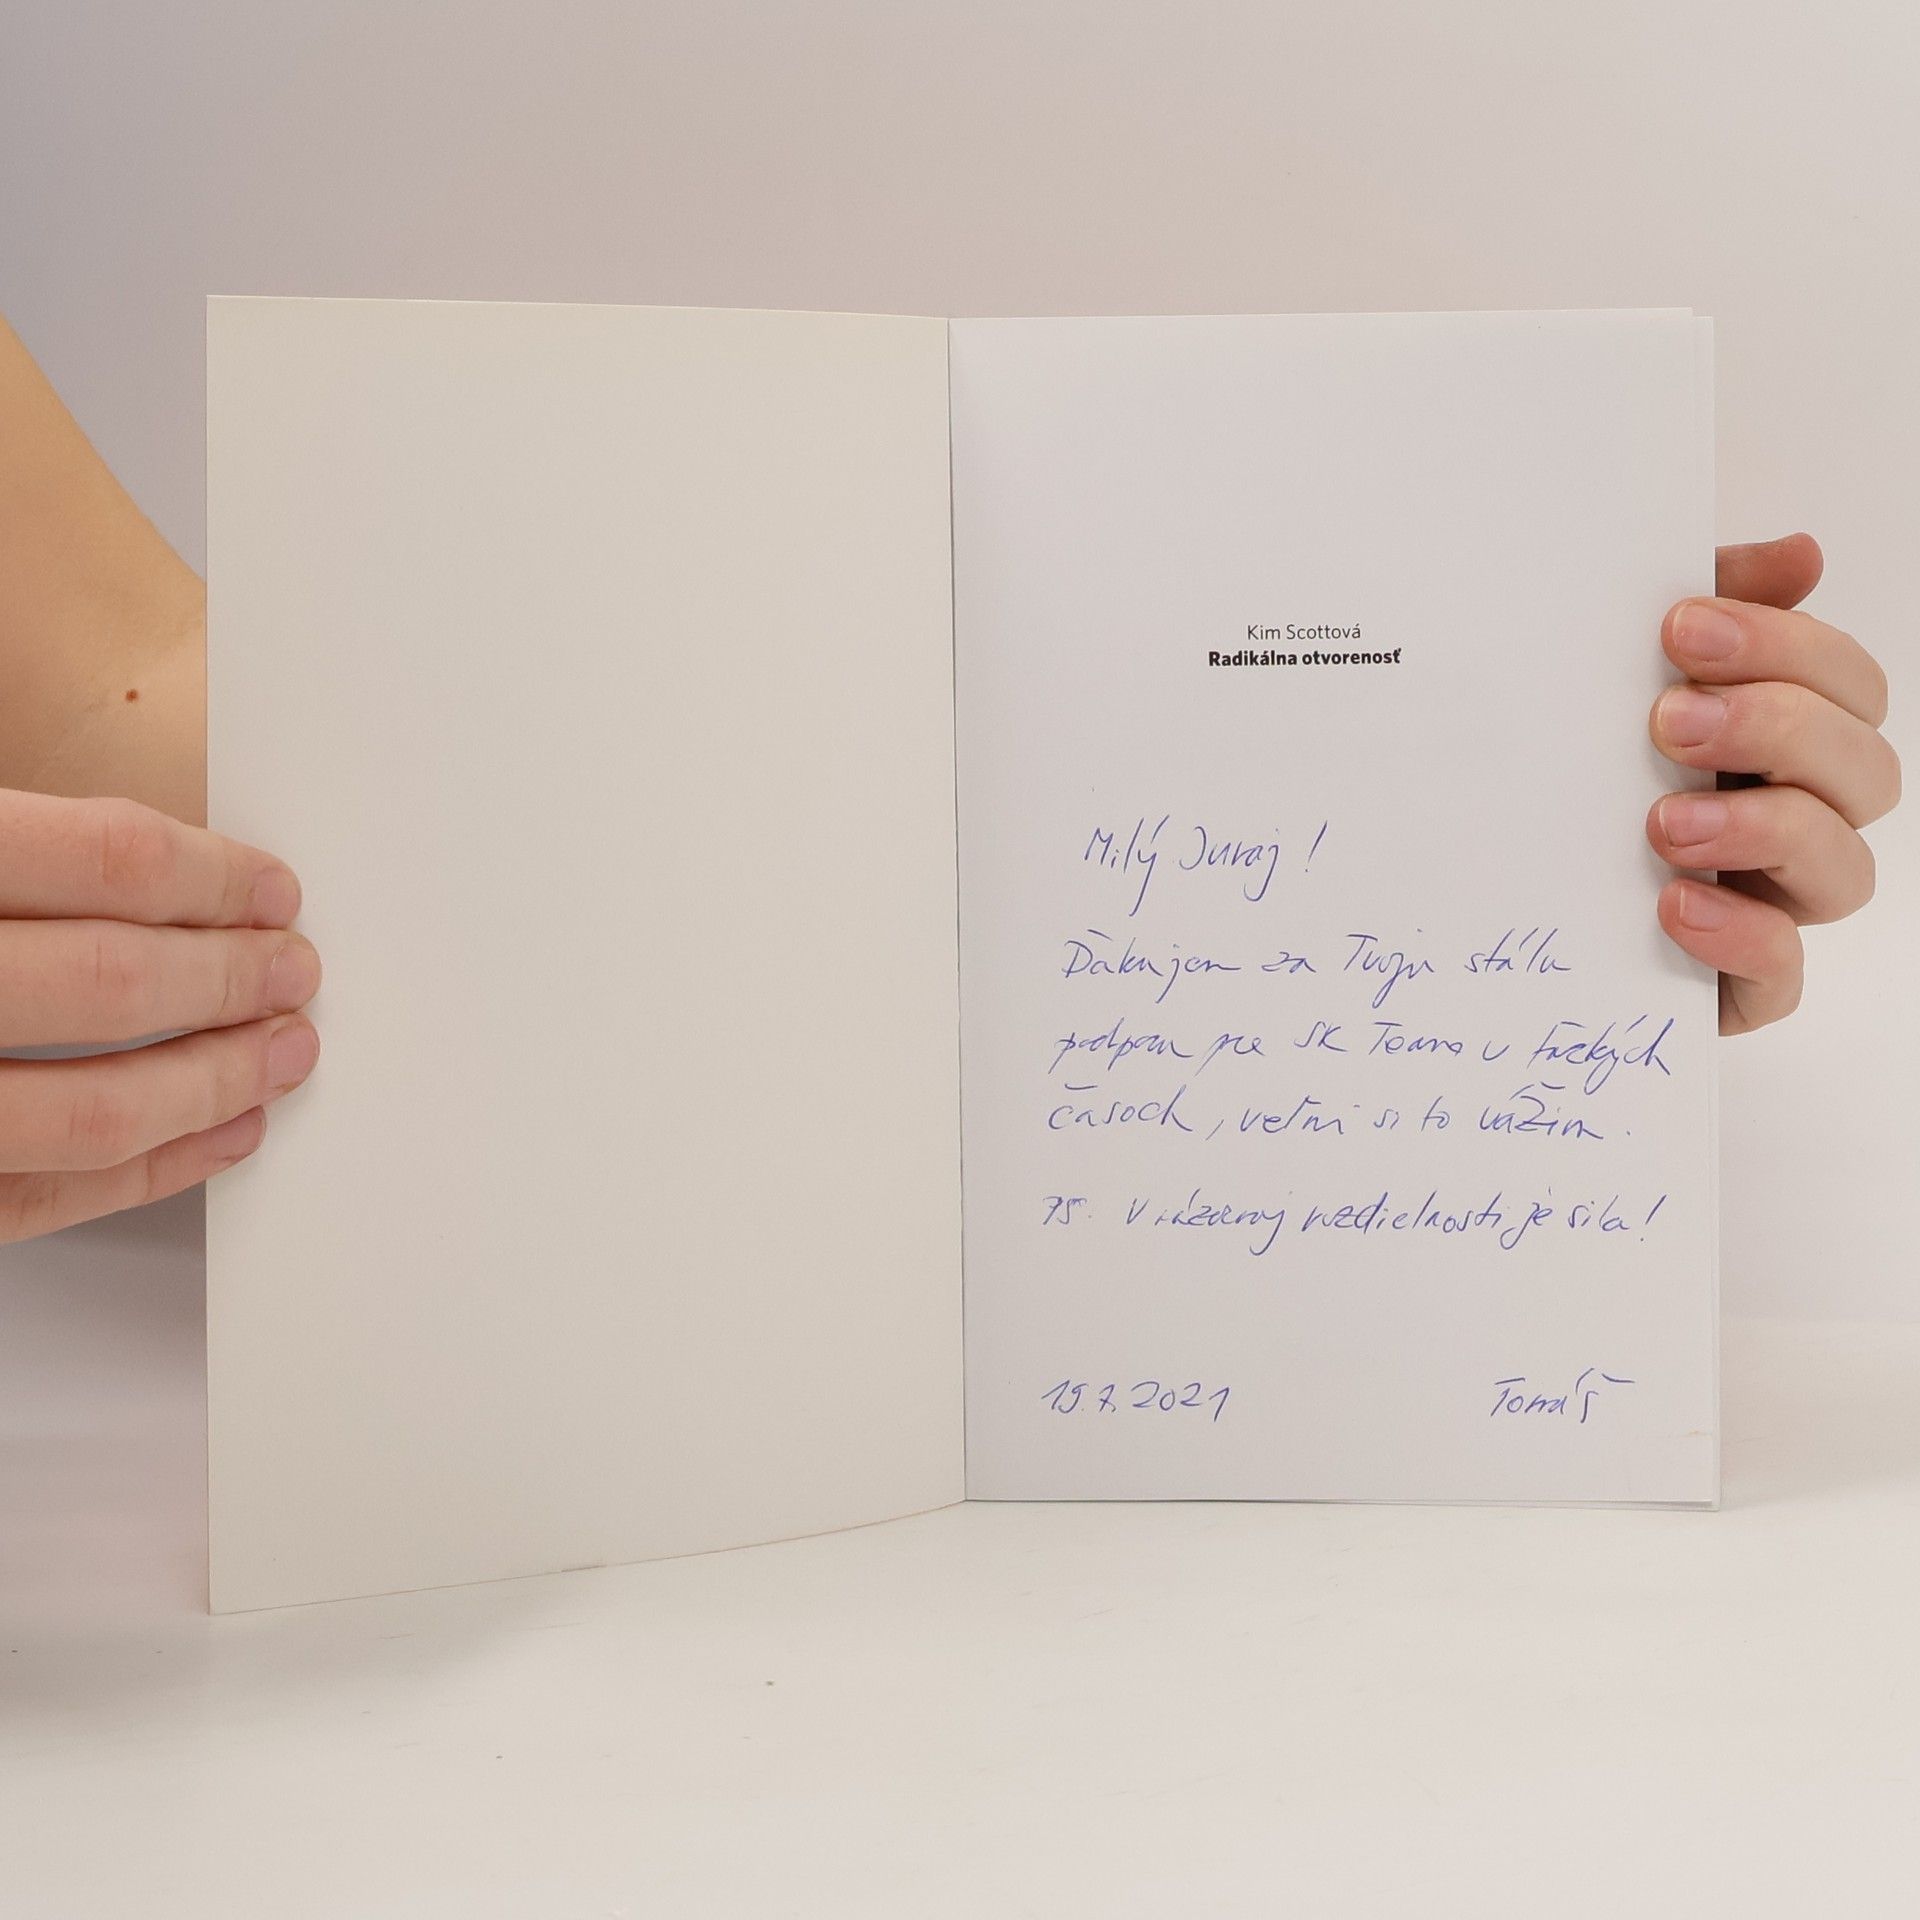 Kim Scottová
Radikálna otvorenosť
Milý Juraj!
Ďakujem za Tvoju stálu
podporu pre SK Team v ťažkých
časoch, veľmi si to vážim.
PS. V názorovej rozdielnosti je sila!
19.7.2021 Tomáš